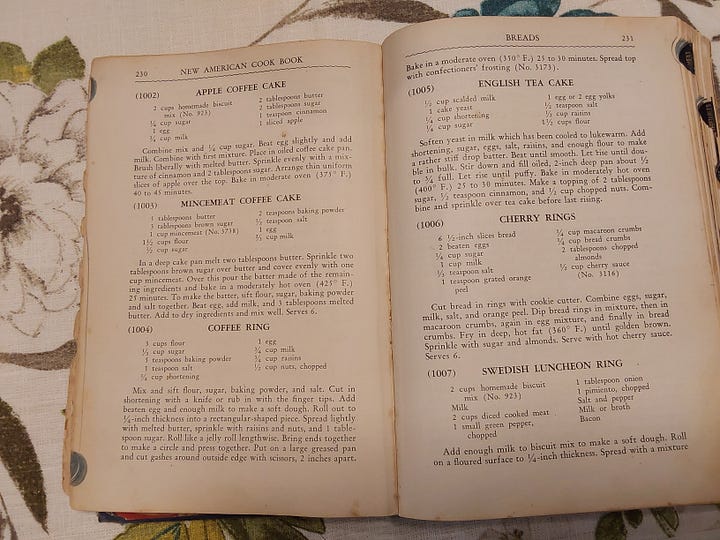 230 NEW AMERICAN COOK BOOK
(1002) APPLE COFFEE CAKE
2 cups homemade biscuit
mix (No. 923)
¼ cup sugar
1 egg
½ cup milk
2 tablespoons butter
2 tablespoons sugar
1 teaspoon cinnamon
1 sliced apple
Combine mix and ¼ cup sugar. Beat egg slightly and add
milk. Combine with first mixture. Place in oiled coffee cake pan.
Brush liberally with melted butter. Sprinkle evenly with a mix-
ture of cinnamon and 2 tablespoons sugar. Arrange thin uniform
slices of apple over the top. Bake in moderate oven (375° F.)
40 to 45 minutes.
(1003) MINCEMEAT COFFEE CAKE
tablespoons butter
tablespoons brown sugar
1 cup mincemeat (No. 3738)
1½ cups flour
½ cup sugar
2 teaspoons baking powder
½ teaspoon salt
1 egg
½ cup milk
In a deep cake pan melt two tablespoons butter. Sprinkle two
tablespoons brown sugar over butter and cover evenly with one
cup mincemeat. Over this pour the batter made of the remain-
ing ingredients and bake in a moderately hot oven (425° F.)
25 minutes. To make the batter, sift flour, sugar, baking powder
and salt together. Beat egg, add milk, and 3 tablespoons melted
butter. Add to dry ingredients and mix well. Serves 6.
(1004) COFFEE RING
3 cups flour
½ cup sugar
teaspoons baking powder
teaspoon salt
cup shortening
1 egg
¾ cup milk
¾ cup raisins
½ cup nuts, chopped
Mix and sift flour, sugar, baking powder, and salt. Cut in
shortening with a knife or rub in with the finger tips. Add
beaten egg and enough milk to make a soft dough. Roll out to
¼-inch thickness into a rectangular-shaped piece. Spread lightly
with melted butter, sprinkle with raisins and nuts, and 1 table-
spoon sugar. Roll like a jelly roll lengthwise. Bring ends together
to make a circle and press together. Put on a large greased pan
and cut gashes around outside edge with scissors, 2 inches apart.
BREADS 231
Bake in a moderate oven (350° F.) 25 to 30 minutes. Spread top
with confectioners' frosting (No. 3173).
(1005) ENGLISH TEA CAKE
½ cup scalded milk
1 cake yeast
¼ cup shortening
¼ cup sugar
1 egg or 2 egg yolks
½ teaspoon salt
cup raisins
1½ cups flour
Soften yeast in milk which has been cooled to lukewarm. Add
shortening, sugar, eggs, salt, raisins, and enough flour to make
a rather stiff drop batter. Beat until smooth. Let rise until dou-
ble in bulk. Stir down and fill oiled, 2-inch deep pan about ½
to ¾ full. Let rise until puffy. Bake in moderately hot oven
(400° F.) 25 to 30 minutes. Make a topping of 2 tablespoons
sugar, ½ teaspoon cinnamon, and ½ cup chopped nuts. Com-
bine and sprinkle over tea cake before last rising.
(1006) CHERRY RINGS
6 ½-inch slices bread
2 beaten eggs
¼ cup sugar
1 cup milk
teaspoon salt
1 teaspoon grated orange
peel
¾ cup macaroon crumbs
¼ cup bread crumbs
2 tablespoons chopped
almonds
½ cup cherry sauce
(No. 3116)
Cut bread in rings with cookie cutter. Combine eggs, sugar,
milk, salt, and orange peel. Dip bread rings in mixture, then in
macaroon crumbs, again in egg mixture, and finally in bread
crumbs. Fry in deep, hot fat (360° F.) until golden brown.
Sprinkle with sugar and almonds. Serve with hot cherry sauce.
Serves 6.
(1007) SWEDISH LUNCHEON RING
2 cups homemade biscuit
mix (No. 923)
Milk
2 cups diced cooked meat
1 small green pepper,
chopped
1 tablespoon onion
1 pimiento, chopped
Salt and pepper
Milk or broth
Bacon
Add enough milk to biscuit mix to make a soft dough. Roll
on a floured surface to ¼-inch thickness. Spread with a mixture